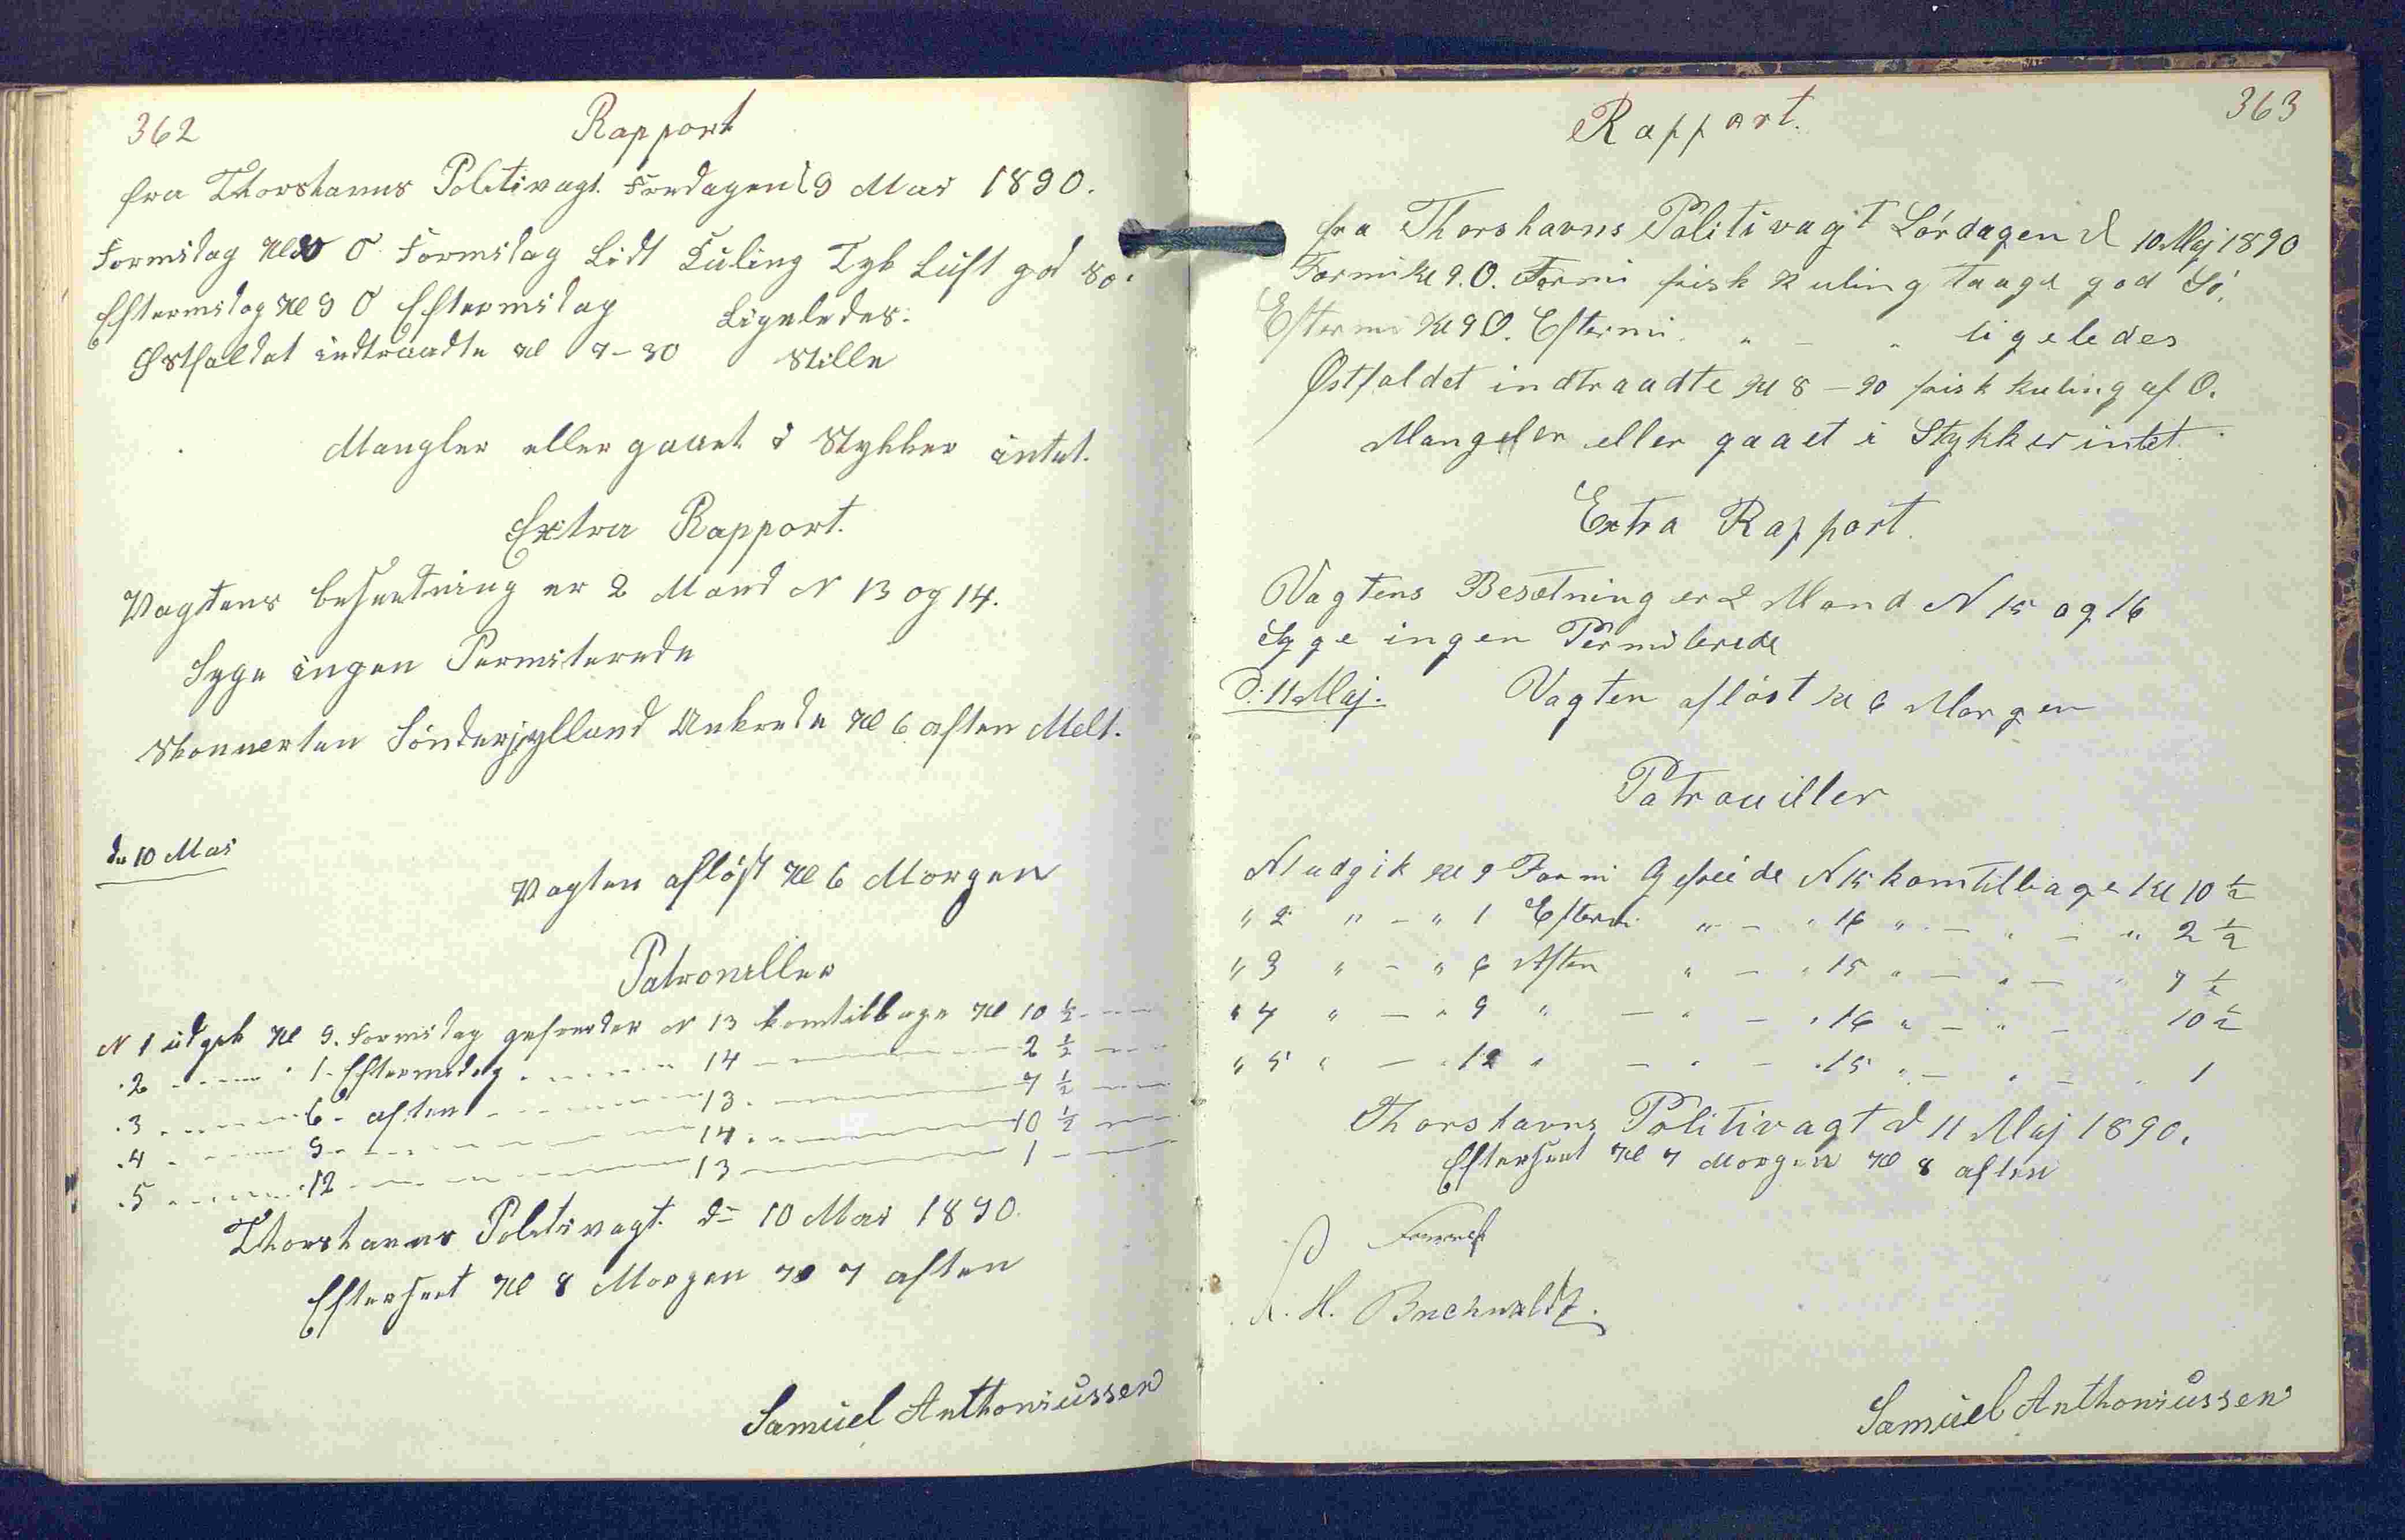 362
Rapport
fra Thorshavns Politivagt Fredagen d 9 Mai 1890.
Formidag Kl 9 O Formidag Lidt Kuling Tyk Luft god So.
Eftermidag Kl 9 O Eftermidag Ligeledes.
Østfaldet indtraadte Kl 7-30 Stille
Mangler eller gaaet i Stykker intet.
Extra Rapport.
Vagtens besætning er 2 Mand N 13 og 14.
Syge ingen Permiterede
Skonnerten Sønderjylland Ankrede Kl 6 aften Meldt.
dn 10 Mai
Vagten afløst Kl 6 Morgen
Patrouiller
N 1 udgik Kl 9. Formidag gefreider N 13 komtilbage Kl 10 ½
" 2 " 1 Eftermidag " 14 " 2 ½
" 3 " 6 aften " 13 " 7 ½
" 4 " 9 " 14 " 10 ½
" 5 " 12 " 13 " 1
Thorshavns Politivagt. dn 10 Mai 1890
Efterseet Kl 8 Morgen Kl 7 aften
Samuel Anthoniussen
363
Rapport.
fra Thorshavns Politivagt Lórdagen d 10 Maj 1890
Formi Kl 9. O. Formi frisk Kuling taage god Só.
Eftermi Kl 9 O. Eftermi. " - " ligeledes
Østfaldet indtraadte Kl 8 - 20 frisk kuling af O.
Mangler eller gaaet i Stykker intet.
Extra Rapport.
Vagtens Besætning er 2 Mand N 15 og 16
Syge ingen Permiterede
D. 11 Maj. Vagten aflöst Kl 6 Morgen
Patrouiller
N1 udgik Kl 9 Formi Gefreide N 15 komtilbage Kl 10 ½
" 2 " - " 1 Eftermi " - " 16 " - " - " 2 ½
" 3 " - " 6 Aften " - " 15 " - " - " 7 ½
" 4 " - " 9 " - " - " 16 " - " - 10 ½
" 5 " - " 12 " - " - " 15 " - " - " 1
Thorshavns Politivagt d 11 Maj 1890.
Efterseet Kl 7 Morgen Kl 8 aften
H. Buchwaldt.
Samuel Anthoniussen